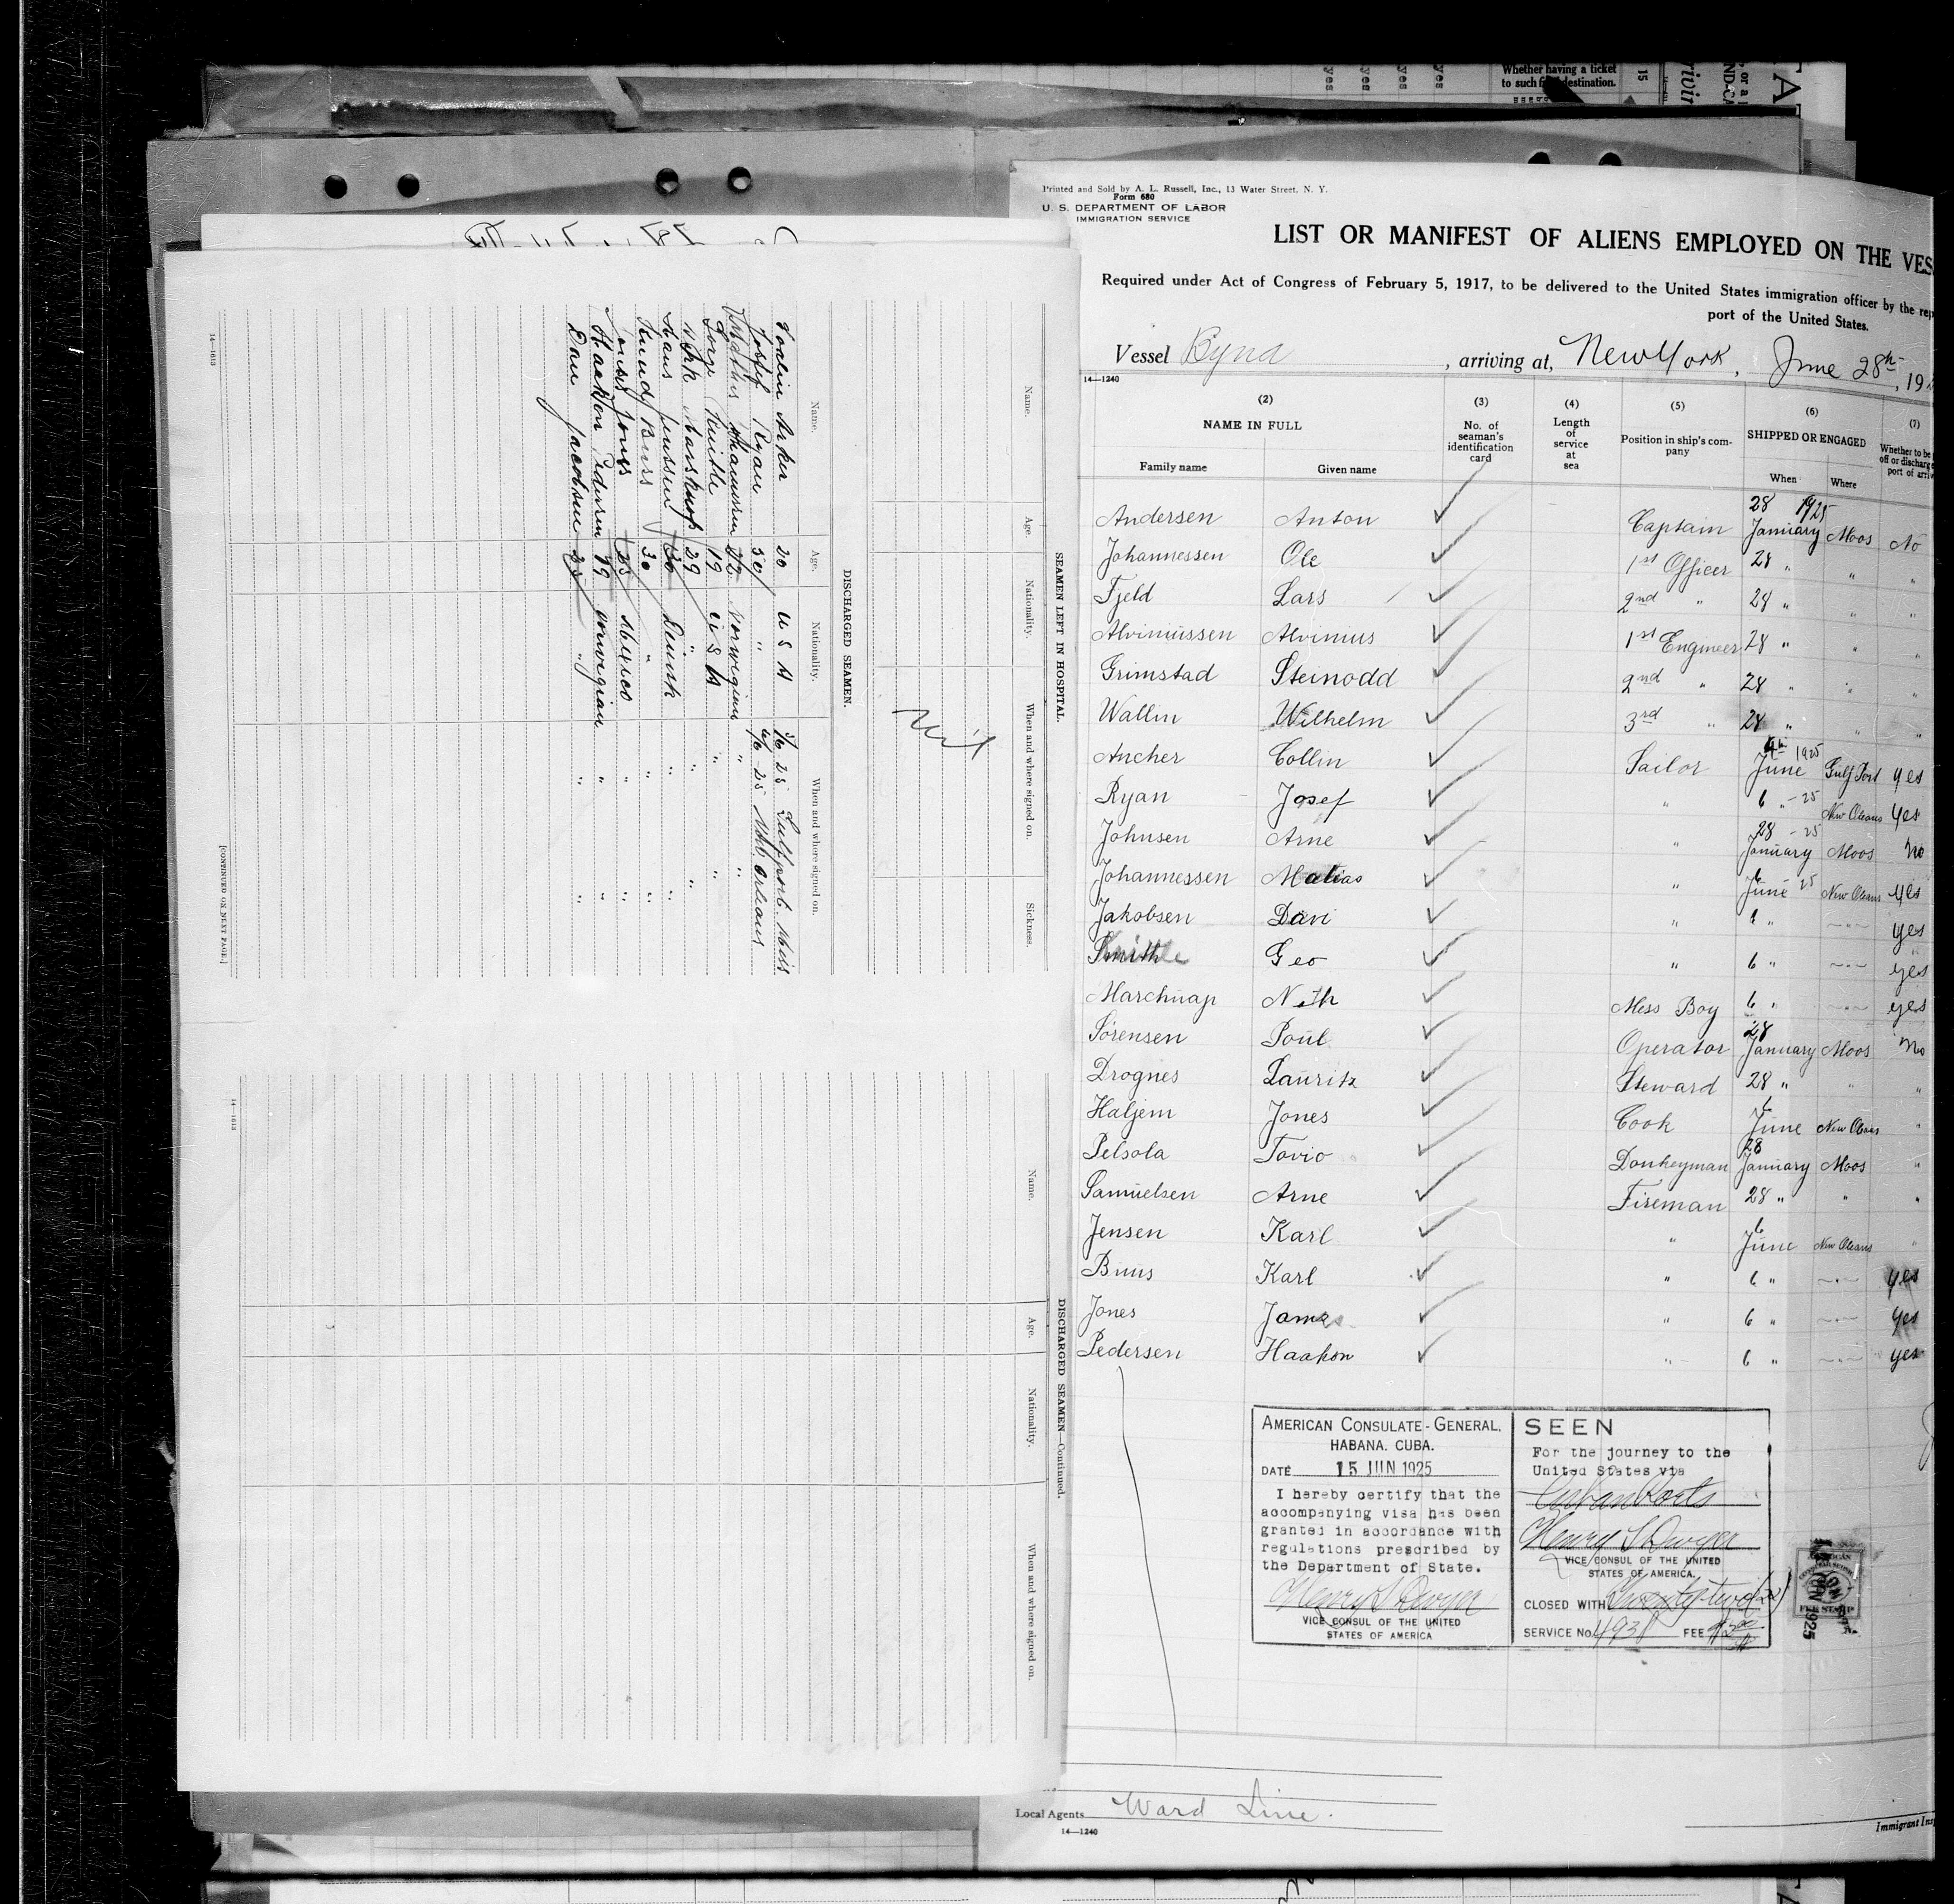 Whether having a ticket
to such final destination.
15
yes yes yes yes
Name. Age. Nationality. When and where signed on. Sickness.
SEAMEN LEFT IN HOSPITAL.
Nil
DISCHARGED SEAMEN.
Name. Age. Nationality. When and where signed on.
20 U S A 5/6 25 Gulfport. Miss
Josef Ryan 30 " 6/6 25 New Orleans
22 Norwegian " "
19 U S A " "
29 " " "
Hans Jenssen 30 Danish " "
Knud Buss 30 " " "
Jones 25 Mexico " "
Haakon Pedersen 49 Norwegian " "
Dan Jacobsen 25 " " "
14—1613
[CONTINUED ON NEXT PAGE.]
DISCHARGED SEAMEN—Continued.
Name. Age. Nationality. When and where signed on.
14—1613
Printed and Sold by A. L. Russell, Inc., 13 Water Street, N. Y.
Form 680
U. S. DEPARTMENT OF LABOR
IMMIGRATION SERVICE
LIST OR MANIFEST OF ALIENS EMPLOYED ON THE VES
Required under Act of Congress of February 5, 1917, to be delivered to the United States immigration officer by the rep
port of the United States.
Vessel Byna, arriving at, New York, June 28th, 19
14—1240
(2) (3) (4) (5) (6) (7)
NAME IN FULL
Family name Given name
No. of seaman's identification card
Length of service at sea
Position in ship's company
SHIPPED OR ENGAGED
When Where
Whether to be
off or discharg
port of arriv
Andersen Anton Captain 28 January 1925 Moos No
Johannessen Ole 1st Officer 28 " " "
Fjeld Lars 2nd " 28 " " "
Alvinussen Alvinius 1st Engineer 28 " " "
Grimstad Steinodd 2nd " 28 " " "
Wallin Wilhelm 3rd " 28 " " "
Ancher Collin Sailor June 1925 Gulf Port yes
Ryan Josef " 6 " - 25 New Oleans yes
Johnsen Arne " 28 - 25 January Moos No
Johannessen Matias " 6 June 25 New Oleans yes
Jakobsen Davi " 6 " —"— yes
Smith Geo " 6 " —"— yes
Marchnap Nith Mess Boy 6 " —"— yes
Sørensen Poul Operator 28 January Moos No
Drognes Lauritz Steward 28 " " "
Haljem Jones Cook 6 June New Oleans "
Pelsola Tovio Donkeyman 28 January Moos "
Samuelsen Arne Fireman 28 " " "
Jensen Karl " 6 June New Oleans "
Buus Karl " 6 " —"— yes
Jones James " 6 " —"— yes
Pedersen Haakon " 6 " —"— yes
AMERICAN CONSULATE-GENERAL,
HABANA. CUBA.
DATE 15 JUN 1925
I hereby certify that the
accompanying visa has been
granted in accordance with
regulations prescribed by
the Department of State.
Henry S Dwyer
VICE CONSUL OF THE UNITED
STATES OF AMERICA
SEEN
For the journey to the
United States via
Cuban Ports
Henry S Dwyer
VICE CONSUL OF THE UNITED
STATES OF AMERICA.
CLOSED WITH Twenty-two (22)
SERVICE No. 4938 FEE
FEE STAMP
JUN 1925
Local Agents Ward Line.
14—1240
Immigrant Insp